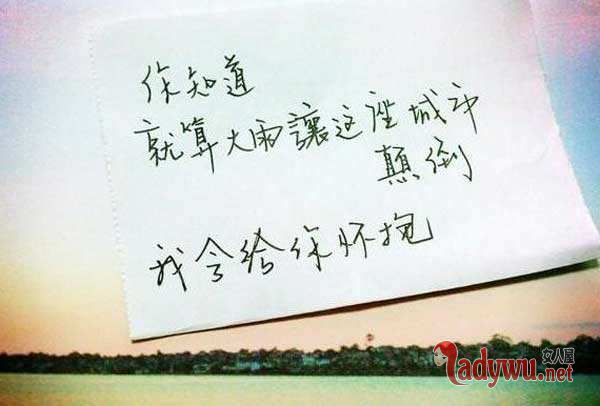 你知道
就算大雨讓这座城市
顛倒
我会给你怀抱
女人屋
Ladywu.net